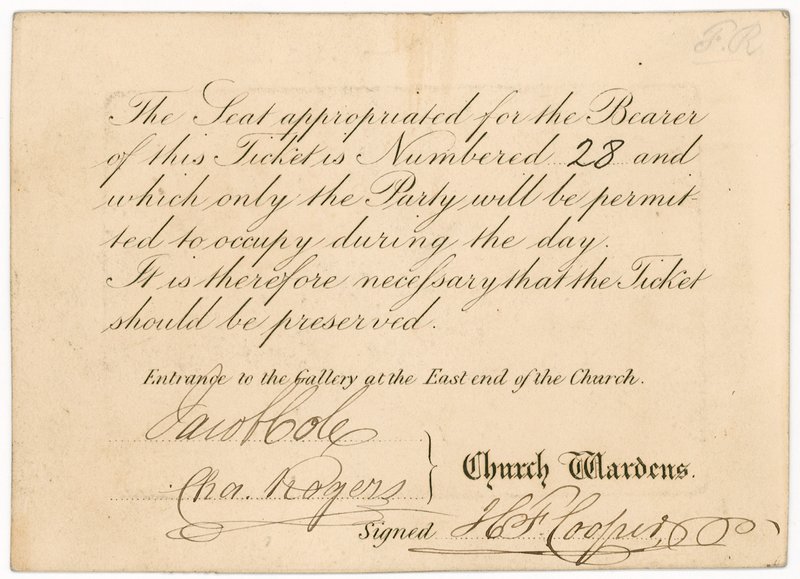 F.R
The Seat appropriated for the Bearer
of this Ticket is Numbered 28 and
which only the Party will be permit-
ted to occupy during the day.
It is therefore neceſsary that the Ticket
should be preserved.
Entrance to the Gallery at the East end of the Church.
Jacob Cole
Cha. Rogers
Church Wardens.
Signed H F. Cooper